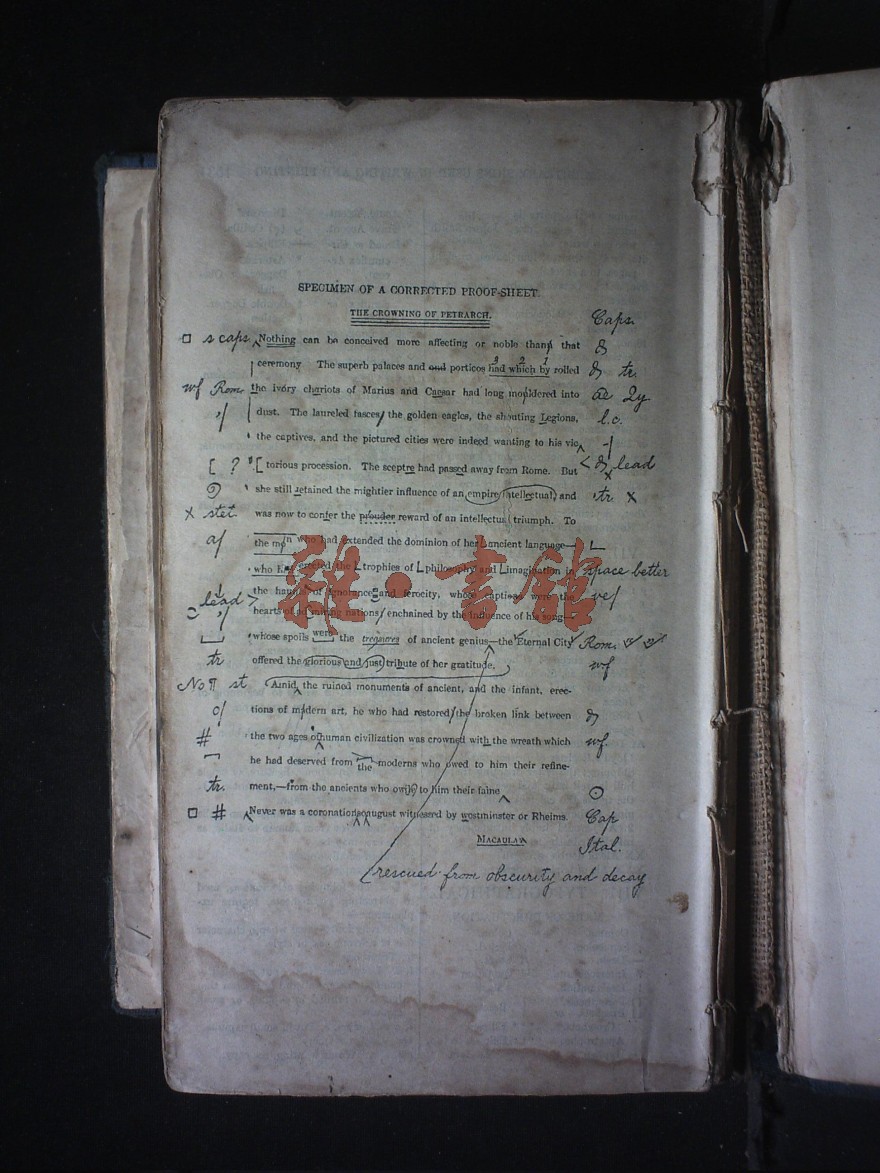 SPECIMEN OF A CORRECTED PROOF-SHEET.
THE CROWNING OF PETRARCH. Caps.
□ s caps. Nothing can be conceived more affecting or noble than that
ceremony The superb palaces and and porticos had which by rolled tr.
3 2 1
wf Rom. the ivory chariots of Marius and Caesar had long mouldered into æ Qy
dust. The laureled fasces the golden eagles, the shouting Legions, l.c.
the captives, and the pictured cities were indeed wanting to his vic
[ ? [ torious procession. The sceptre had passed away from Rome. But < lead
she still retained the mightier influence of an empire intellectual, and tr. x
x stet was now to confer the prouder reward of an intellectus triumph. To
a/ the mon who had extended the dominion of her ancient language—
who had erected the trophies of philosophy and imagination in space better
the haunts of ignorance and ferocity, whose captives were the ve/
lead > hearts of admiring nations enchained by the influence of his song—
whose spoils were the treasures of ancient genius—the Eternal City Rom.
tr offered the glorious and just tribute of her gratitude. wf
No ¶ st Amid the ruined monuments of ancient, and the infant, erec-
o/ tions of modern art, he who had restored the broken link between
# the two ages of human civilization was crowned with the wreath which wf
he had deserved from the moderns who owed to him their refine-
tr. ment,—from the ancients who owed to him their fame
□ # Never was a coronation so august witnessed by westminster or Rheims. Cap
MACAULAY Ital.
rescued from obscurity and decay
雜·書館